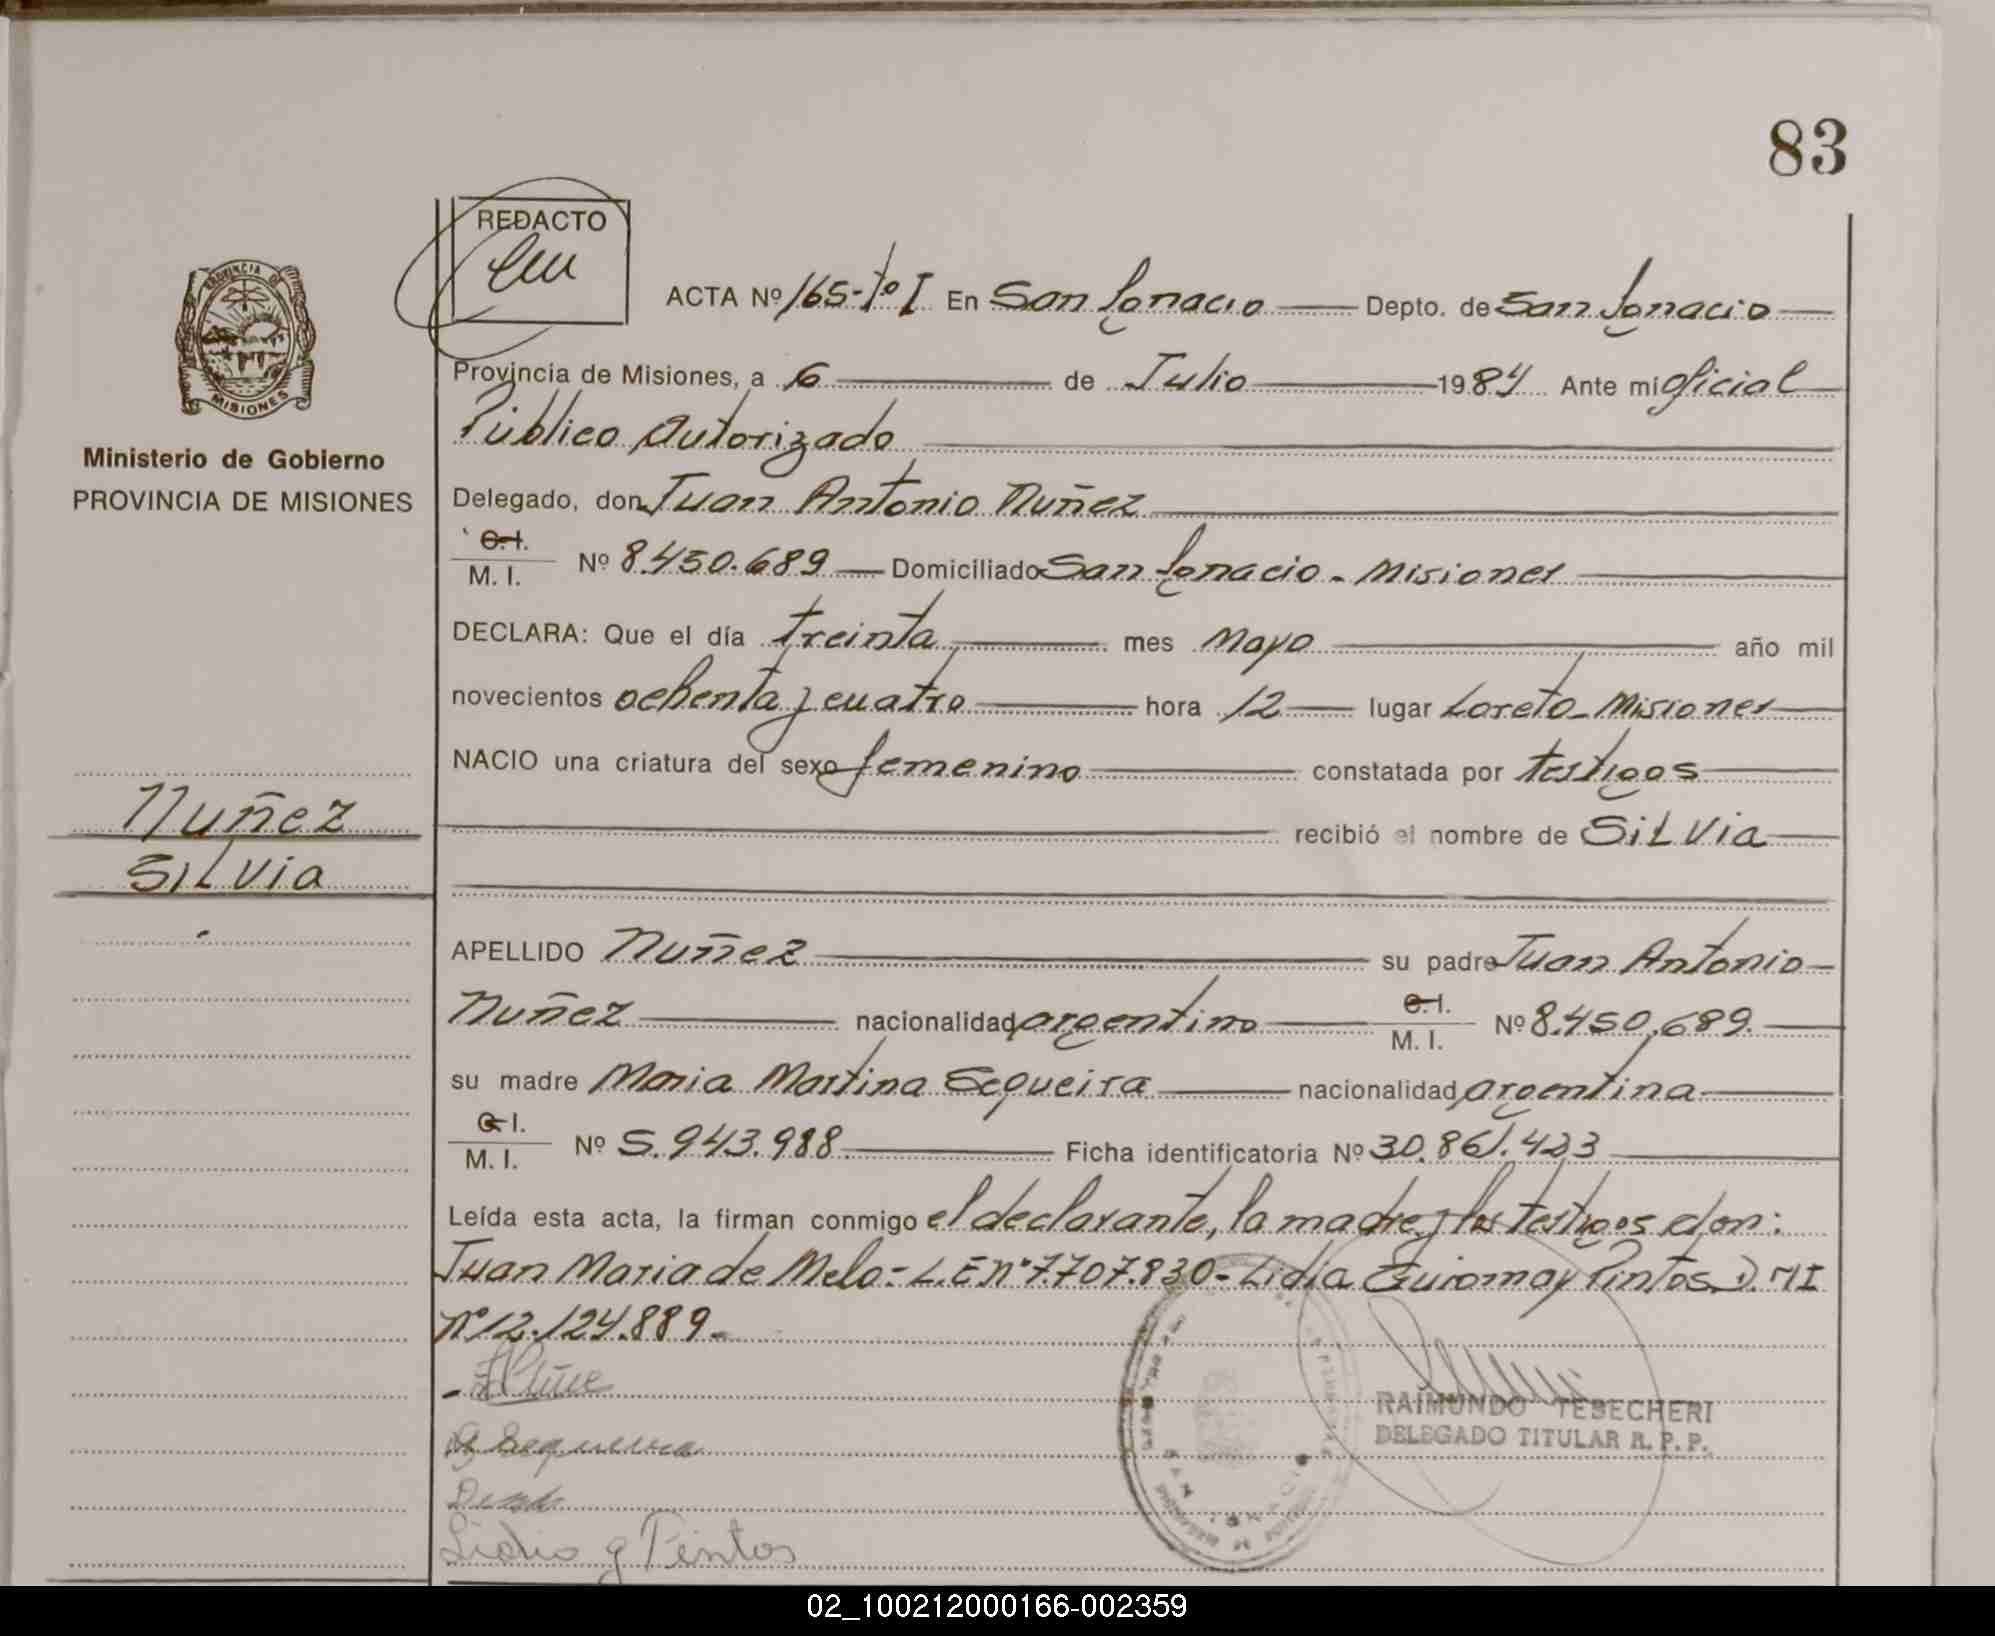 83
REDACTO
PROVINCIA DE
MISIONES
Ministerio de Gobierno
PROVINCIA DE MISIONES
Nuñez
SiLvia
ACTA Nº 165-Tº I En San Ignacio Depto. de San Ignacio
Provincia de Misiones, a 6 de Julio 1984 Ante mi oficial
Público Autorizado
Delegado, don Juan Antonio Nuñez
C.I.
M. I. Nº 8.450.689 Domiciliado San Ignacio - Misiones
DECLARA: Que el día treinta mes Mayo año mil
novecientos ochenta y cuatro hora 12 lugar Loreto - Misiones
NACIO una criatura del sexo femenino constatada por testigos
recibió el nombre de SiLvia
APELLIDO Nuñez su padre Juan Antonio
Nuñez nacionalidad argentino C.I. M. I. Nº 8.450.689
su madre Maria Martina Sequeira nacionalidad argentina
C.I.
M. I. Nº 5.943.988 Ficha identificatoria Nº 30.861.423
Leída esta acta, la firman conmigo el declarante, la madre y los testigos don:
Juan Maria de Melo.- L.E Nº 7.707.830 - Lidia Guiomar Pintos D.M I
Nº 12.124.889 -
Sequeira
Lidia g Pintos
RAIMUNDO TEBECHERI
DELEGADO TITULAR R. P. P.
02_100212000166-002359